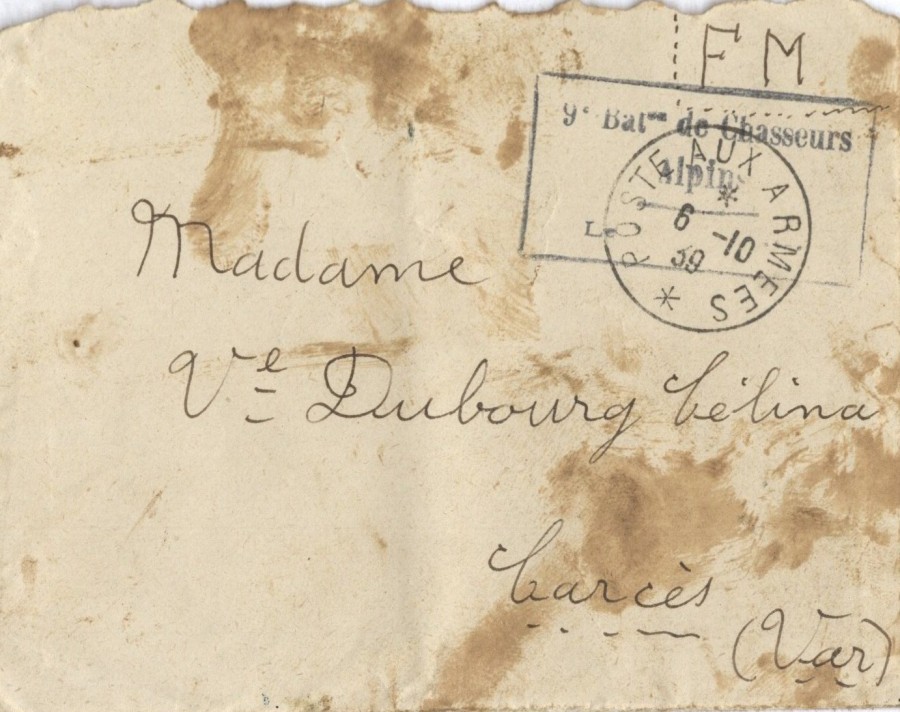 F M
9e Baton de Chasseurs
Alpins
L
POSTE AUX ARMÉES
6 -10
39
Madame
Ve Dubourg Célina
Carcès
(Var)